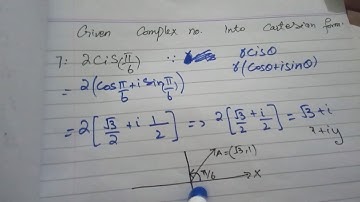 Given Complex no. Into Cartesian form.
7: 2Cis(π/6) ∵ rCisθ
r(Cosθ+isinθ)
= 2(Cosπ/6 + i Sinπ/6)
= 2[√3/2 + i 1/2] => 2[√3/2 + i/2] = √3+i
x+iy
A=(√3,1)
π/6 X